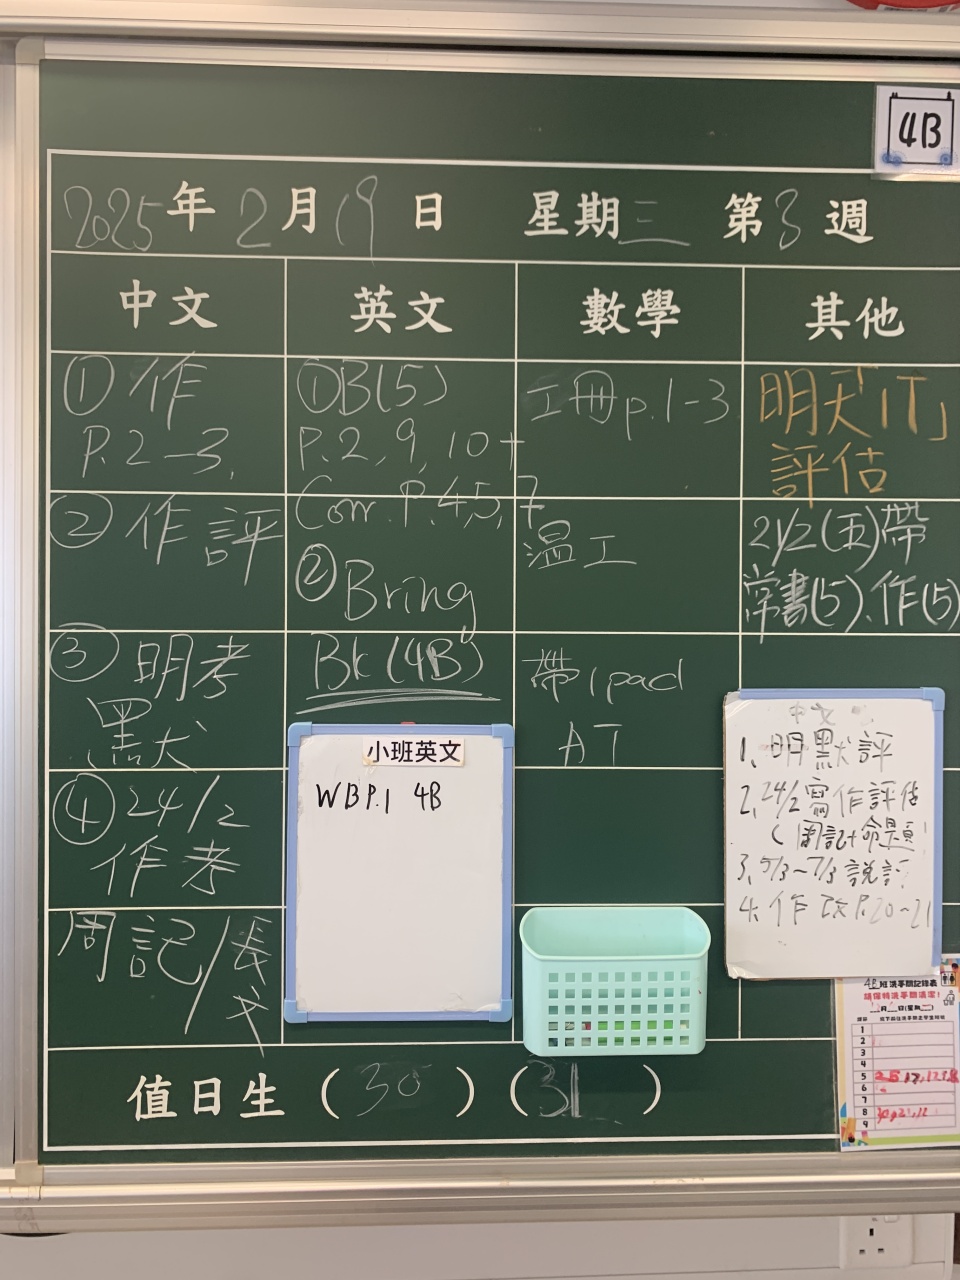 4B
2025年2月19日 星期三 第3週
中文 英文 數學 其他
①作
P.2-3.
②作評
③明考
默
④24/2
作考
周記/長
①B(5)
P.2, 9, 10+
Corr. P.4,5,7
②Bring
Bk (4B)
小班英文
WB P.1 4B
工冊p.1-3
溫工
帶ipad
AT
明天「IT」
評估
21/2(五)帶
常書(5)、作(5)
中文
1、明默評
2、24/2 寫作評估
(周記+命題)
3、5/3~7/3 說評
4、作改P.20~21
4B班洗手間記錄表
請保持洗手間清潔!
1
2
3
4
5
6
7
8
9
值日生(30)(31)